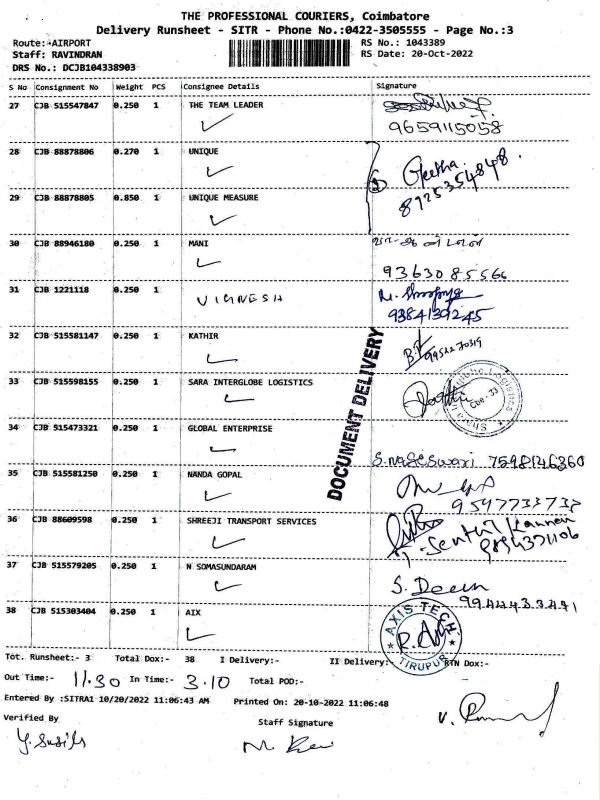 THE PROFESSIONAL COURIERS, Coimbatore
Delivery Runsheet - SITR - Phone No.:0422-3505555 - Page No.:3
Route:-AIRPORT RS No.: 1043389
Staff: RAVINDRAN RS Date: 20-Oct-2022
DRS No.: DCJB104338903
S No Consignment No Weight PCS Consignee Details Signature
27 CJB 515547847 0.250 1 THE TEAM LEADER
9659115058
28 CJB 88878806 0.270 1 UNIQUE
Geetha.
8925354848.
29 CJB 88878805 0.850 1 UNIQUE MEASURE
30 CJB 88946180 0.250 1 MANI
9363085566
31 CJB 1221118 0.250 1 VIGNESH
9384139245
32 CJB 515581147 0.250 1 KATHIR
33 CJB 515598155 0.250 1 SARA INTERGLOBE LOGISTICS
DOCUMENT DELIVERY
34 CJB 515473321 0.250 1 GLOBAL ENTERPRISE
S.nageswari 7598146360
35 CJB 515581250 0.250 1 NANDA GOPAL
9597733737
36 CJB 88609598 0.250 1 SHREEJI TRANSPORT SERVICES
Senthil Kannan
9894371106
37 CJB 515579205 0.250 1 N SOMASUNDARAM
S. Deen
9944433491
38 CJB 515303404 0.250 1 AIX
AXIS TECH
TIRUPUR
Tot. Runsheet:- 3 Total Dox:- 38 I Delivery:- II Delivery:- RTN Dox:-
Out Time:- 11.30 In Time:- 3.10 Total POD:-
Entered By :SITRA1 10/20/2022 11:06:43 AM Printed On: 20-10-2022 11:06:48
Verified By Staff Signature